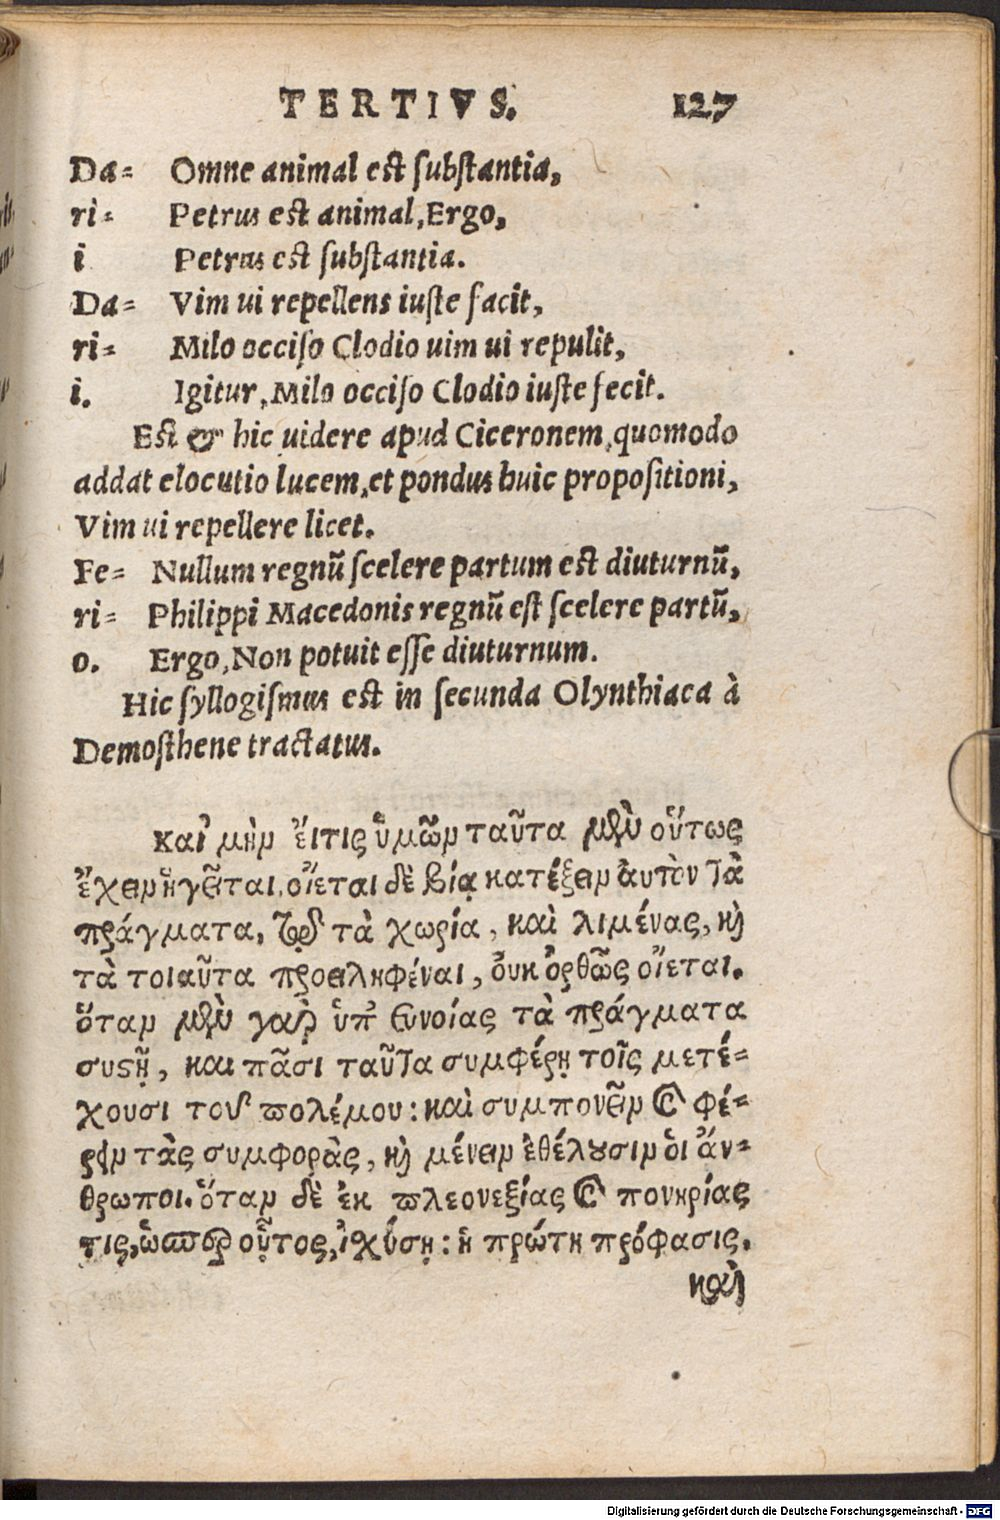 TERTIVS. 127
Da= Omne animal est substantia,
ri= Petrus est animal, Ergo,
i Petrus est substantia.
Da= Vim ui repellens iuste facit,
ri= Milo occiso Clodio uim ui repulit,
i. Igitur, Milo occiso Clodio iuste fecit.
Est & hic uidere apud Ciceronem, quomodo
addat elocutio lucem, et pondus huic propositioni,
Vim ui repellere licet.
Fe= Nullum regnũ scelere partum est diuturnũ,
ri= Philippi Macedonis regnũ est scelere partũ,
o. Ergo, Non potuit esse diuturnum.
Hic syllogismus est in secunda Olynthiaca à
Demosthene tractatus.
καὶ μὴν ἔιτις ὑμῶν ταῦτα μὲν οὕτως
ἔχειν ἡγεῖται, οἴεται δὲ βίᾳ κατέξειν ἀυτὸν τὰ
πράγματα, τῷ τὰ χωρία, καὶ λιμένας, καὶ
τὰ τοιαῦτα προειληφέναι, ὀυκ ὀρθῶς οἴεται.
ὅταν μὲν γὰρ ὑπ' ἐυνοίας τὰ πράγματα
συστῇ, και πᾶσι ταῦτα συμφέρῃ τοῖς μετέ=
χουσι τοῦ πολέμου: καὶ συμπονεῖν καὶ φέ=
ρειν τὰς συμφορὰς, καὶ μένειν ἐθέλουσιν ὁι ἄν=
θρωποι. ὅταν δὲ ἐκ πλεονεξίας καὶ πονηρίας
τις, ὥσπερ οὗτος, ἰσχύσῃ: ἡ πρώτη πρόφασις.
καὶ
Digitalisierung gefördert durch die Deutsche Forschungsgemeinschaft - DFG